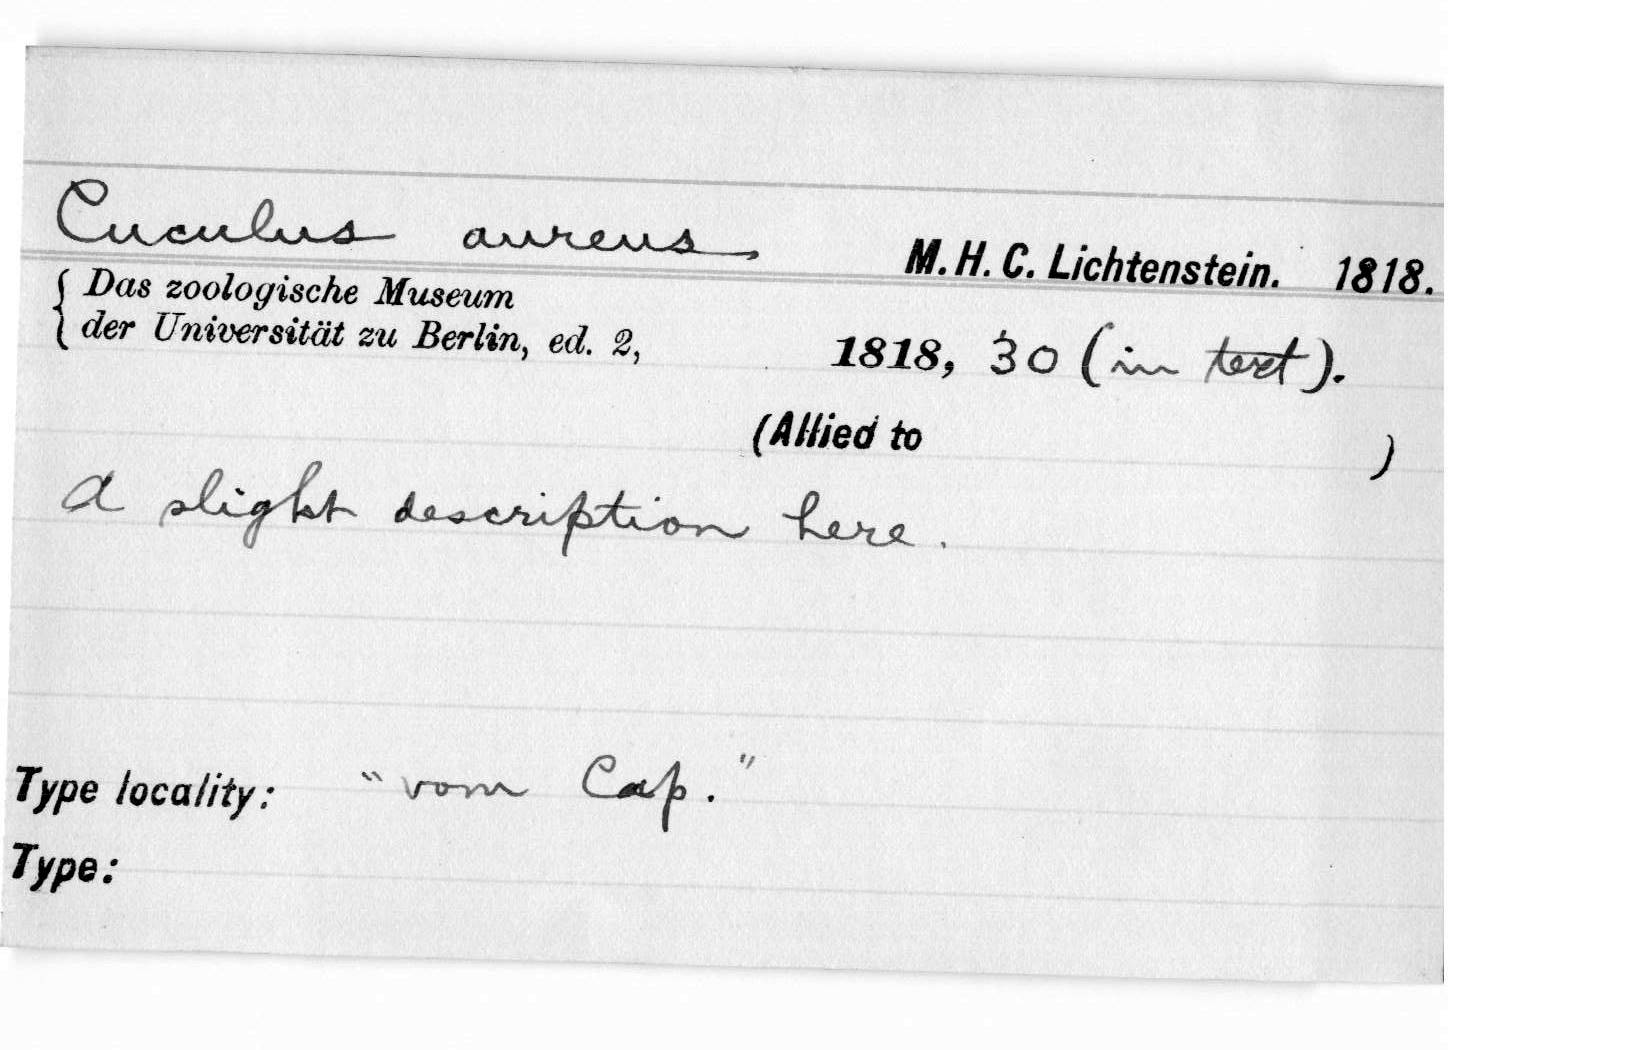 Cuculus aureus M. H. C. Lichtenstein. 1818.
Das zoologische Museum
der Universität zu Berlin, ed. 2, 1818, 30 (in text).
(Allied to )
A slight description here.
Type locality: "vom Cap."
Type: